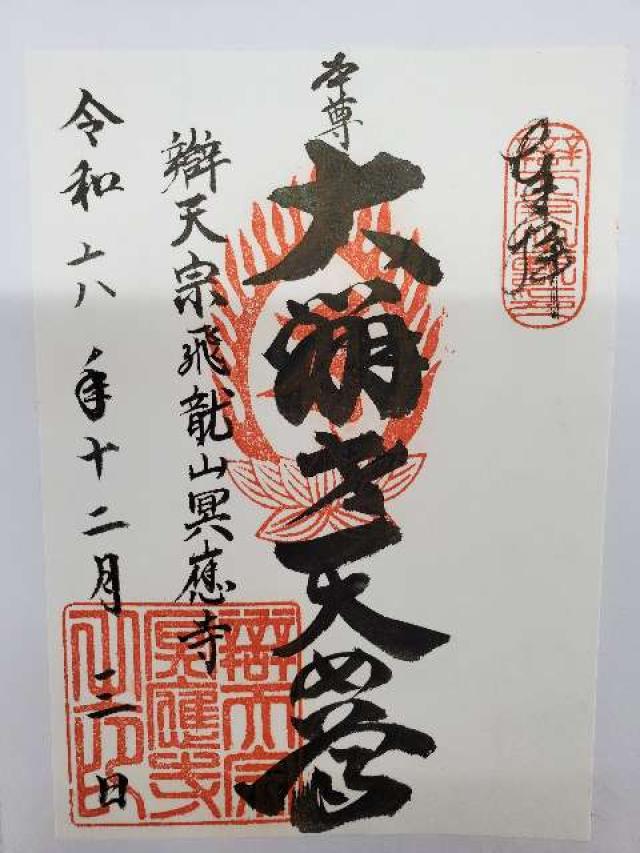 奉拝
本尊
大辯才天女尊
辯天宗飛龍山冥應寺
令和六年十二月三日
辯天宗
冥應寺
之印